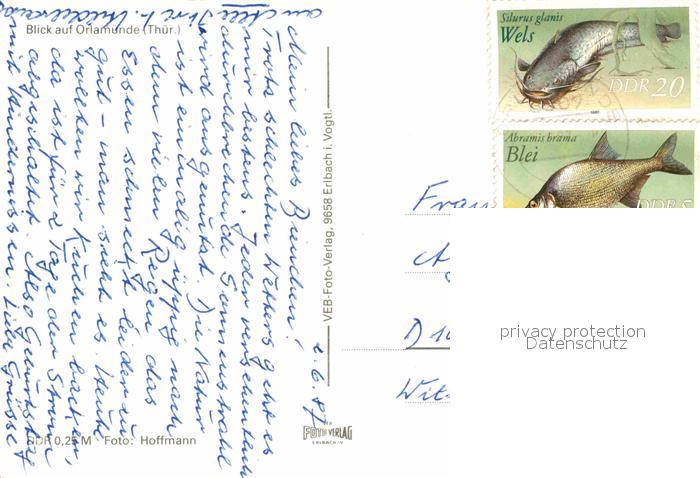 Blick auf Orlamünde (Thür.)
2.6.87
Mein liebes Bienchen!
Trotz schlechten Wetters geht es
mir bestens. Jeder
durchbrechende Sonnenstrahl
wird ausgenutzt. Die Natur
ist einmalig üppig nach
dem vielen Regen das
Essen schmeckt leider zu
gut - man sieht es. Heute
wollten wir Kuchen backen,
da ist für 2 Tage der Strom
abgeschaltet. Also Geburtstag
mit Hindernissen. Liebe Grüsse
an Alle Ihre
DDR 0,25 M · Foto: Hoffmann
VEB-Foto-Verlag, 9658 Erlbach i. Vogtl.
FOTO VERLAG
ERLBACH/V
Silurus glanis
Wels
DDR 20
Abramis brama
Blei
DDR 5
Frau
D 10
Wit
privacy protection
Datenschutz